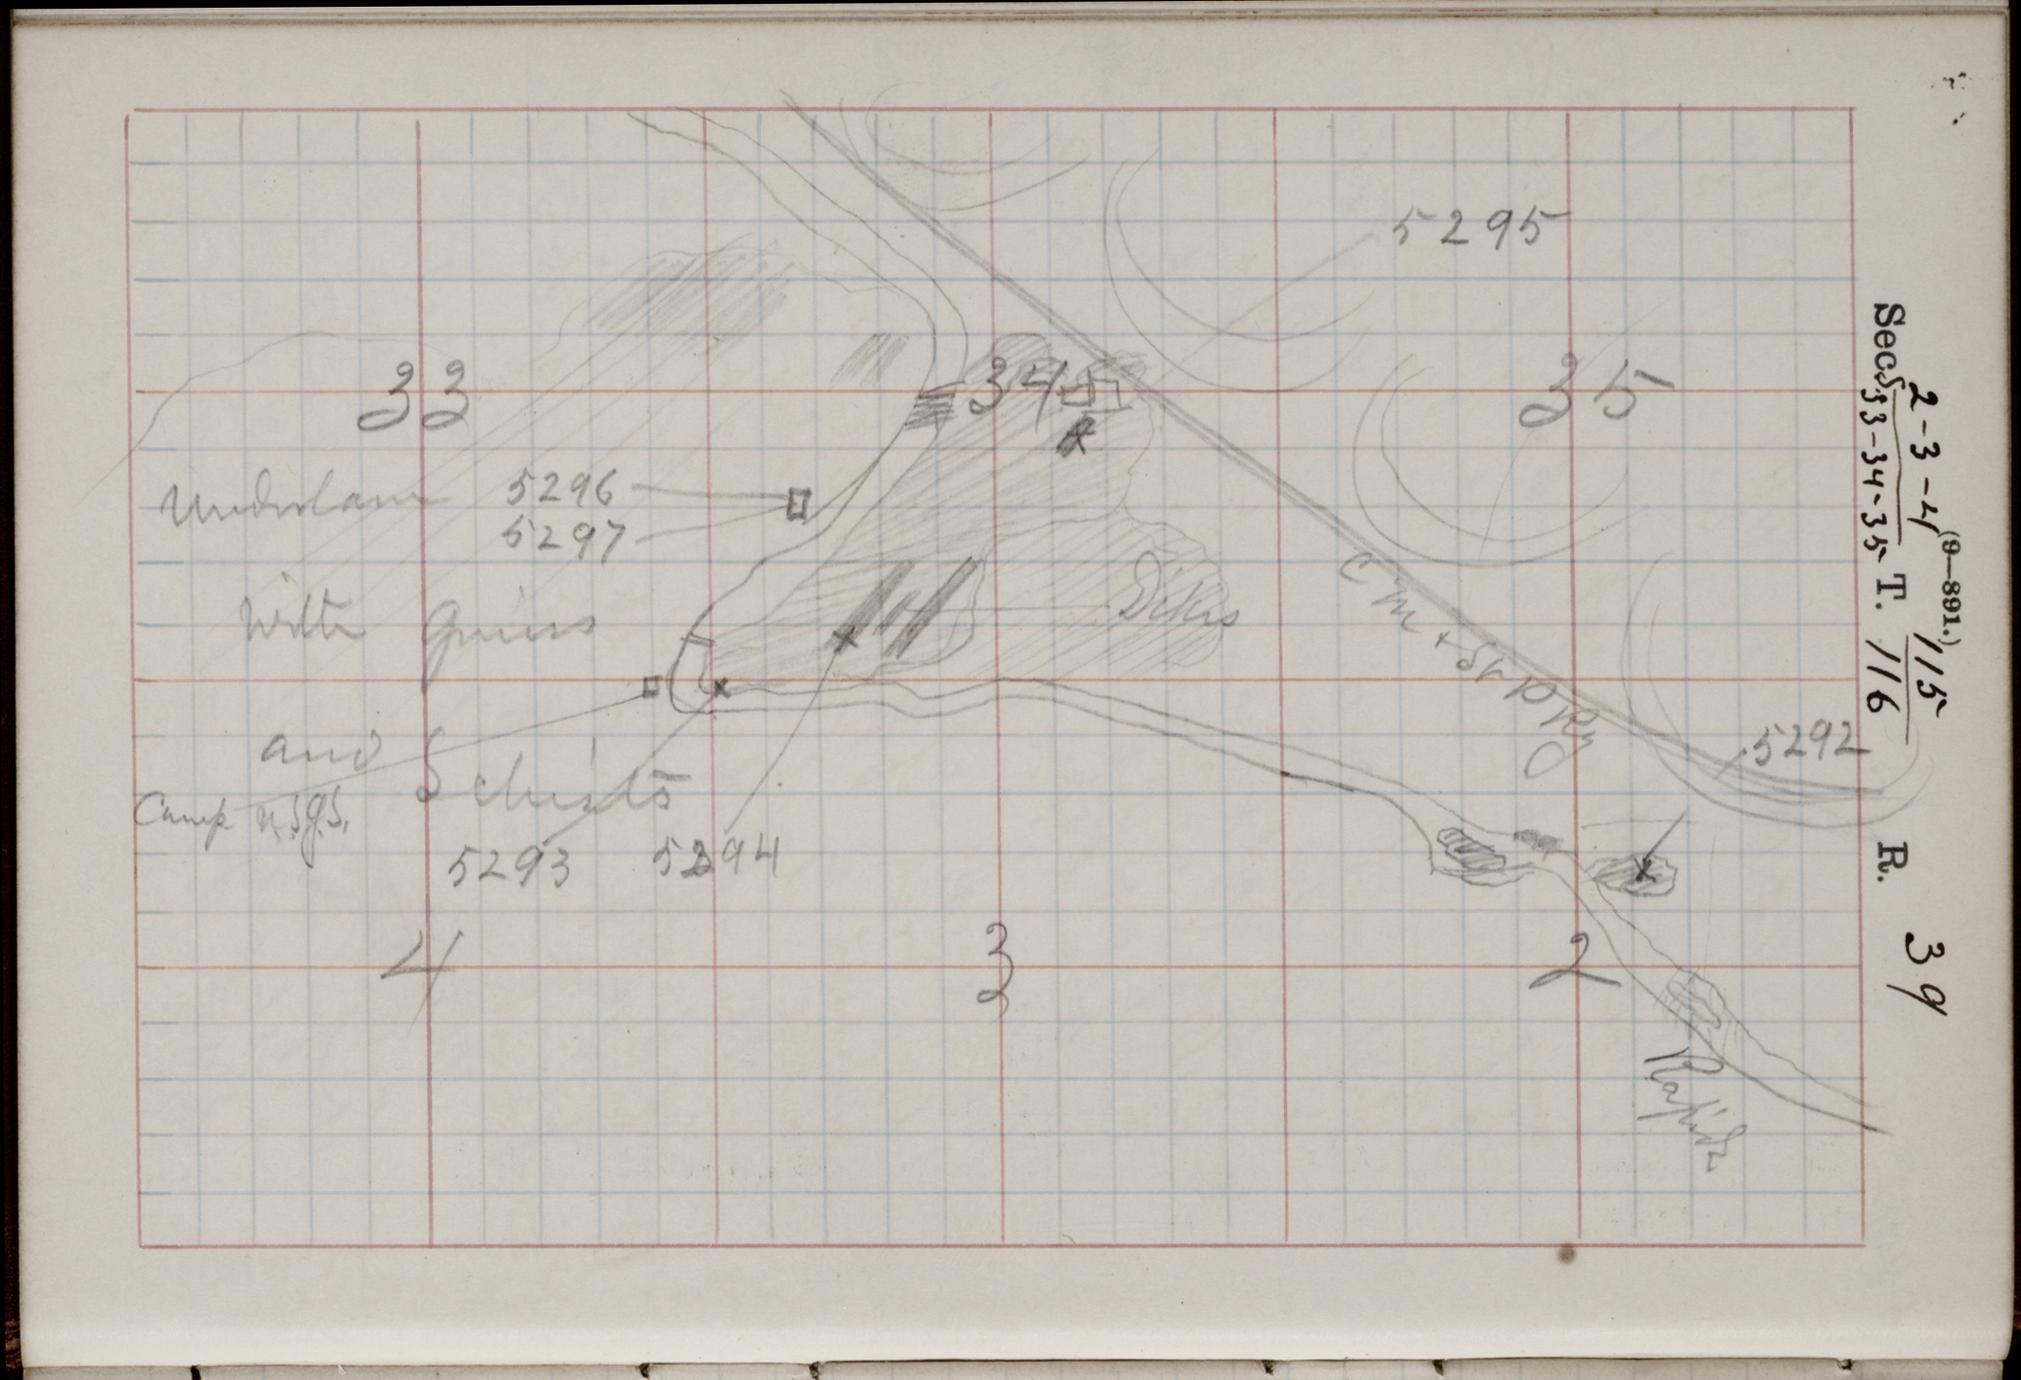 5295
33
34
35
Underlain 5296
5297
with Gneiss
Dikes
C M & St P Ry
and Schists
Camp U.S.G.S.
5292
5293
5294
4
3
2
Rapids
(9—891.)
2-3-4 115
Secs. 33-34-35 T. 116 R. 39